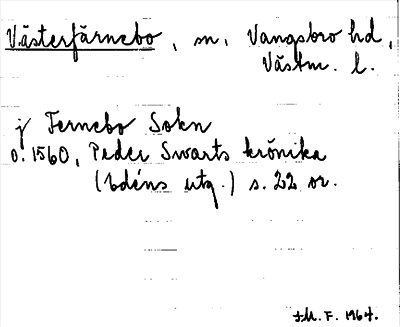 Västerfärnebo, sn, Vangsbro hd,
Västm. l.
j Fernebo Sokn
o. 1560, Peder Swarts krönika
(Edéns utg.) s. 22 or.
F. 1964.